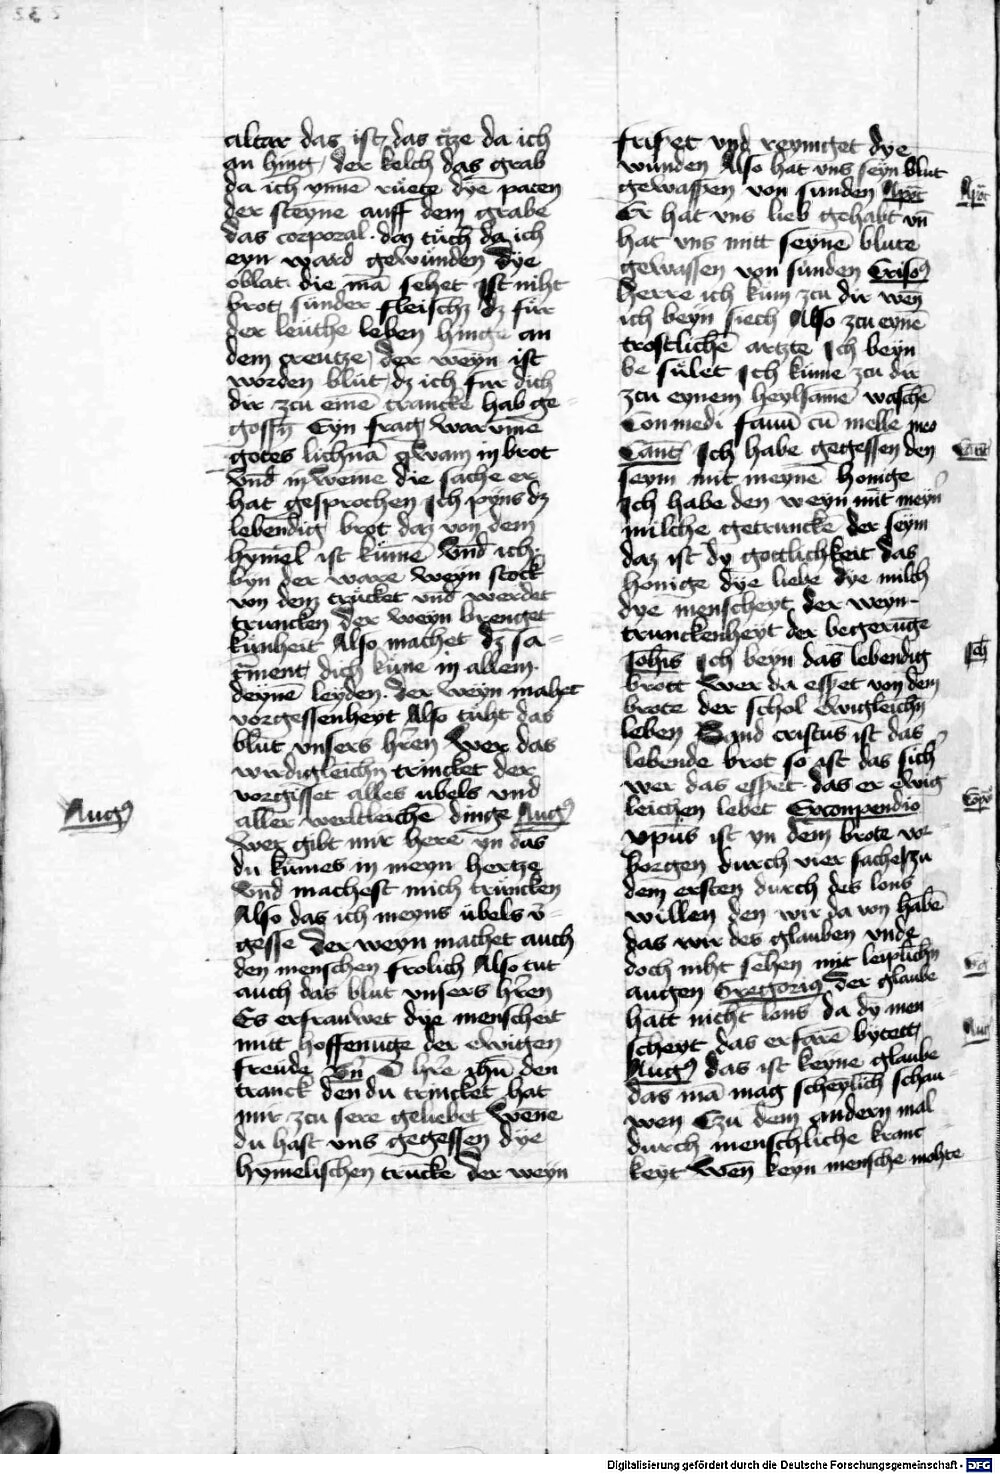 altar das ist das ctze da ich
an hing / der kelch das grab
da ich ynne ruete dye paten
der steyne auff dem grabe
das corporal · daz tuch da ich
eyn ward gewunden dye
oblat · die mā sehet ist niht
brot sunder fleisch dz fur
der leuthe leben hinge an
dem creutze / der weyn ist
worden blut / dz ich fur dich
dir zcu eine trancke hab ge-
gossn̄ Eyn frag / warume
gotes lichnā qwam in brot
Vnd in weine die sache er
hat gesprochen Ich pyns dz
lebendig brot daz von dem
hymel ist kume Vnd ich
byn der ware weyn stock
von dem trucket vnd werdet
truncken der weyn brenget
kunheit Also machet dz sa-
crament dich kune in allem
deyne leyden · der weyn mahet
vorgessenheyt Also tuht das
blut vnsers hren Wer das
wirdigleichn trincket der
vorgisset alles ubels vnd
aller werltleiche dinge Aug9
Wer gibt mir here yn das
du kumes in meyn hertze
Vnd machest mich truncken
Also das ich meyns ubels v-
gesse Der weyn machet auch
den menschen frolich Also tut
auch das blut vnsers hren
Es erfrauwet dye menscheit
mitt hoffenuge der ewigen
freude Vn O hre ihu den
tranck den du trincket hat
mir zcu sere geliebet Wene
du hast vns gegessen dye
hymelischen trucke der weyn
Aug9
frist vnd reyniget dye
wunden Also hat vns seyn blut
gewassen von sunden Apoc
Er hat vns lieb gehabt vn
hat vns mitt seyne blute
gewassen von sunden Criso9
Herre ich kum zcu dir wen
ich beyn siech Also zcu eyne
trostliche artzte Ich beyn
be sulet Ich kume zcu dir
zcu eynem heylsame wasche
Conmedi fauu cu melle meo
Cant Ich habe gegessen den
seym mit meyne honige
Ich habe den weyn mit meyn
milche getruncke der seym
daz ist dy gottlichkeit das
honige dye liebe dye milch
dye menscheyt der weyn-
trunckenheyt der begeruge
Johis Ich beyn das lebendig
brott Wer da esset von dem
brote der schol ewigleichn
leben Vnd cristus ist das
lebende brot so ist das sich
wer das esset · das er ewig
leichen lebet Ex compendio
xpus ist yn dem brote vor-
borgen durch vier sache / zu
dem ersten durch des lons
willen den wir da von habe
das wir des glauben vnde
doch niht sehen mit leiplichn
augen Gregorius Der glaube
hatt nicht lons da dy men
scheyt das erfare bytett
Aug9 das ist keyne glaube
das ma mag scheylich schau-
wen Czu dem andern mal
durch menschliche kranc-
keyt Wen keyn mensche mohte
Apoc
Cant
Joh
Aug